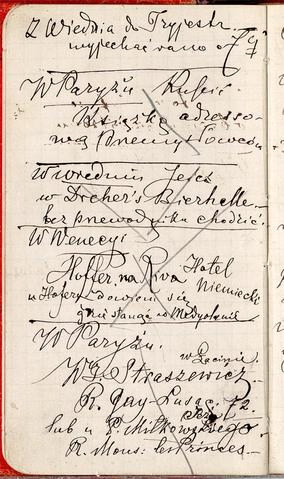 Z Wiednia do Tryjestu
wyjechać rano o 7
W Paryżu Kupić
Książkę adresso-
wą Przemysłowców
W Wiedniu Jeść
w Dreher's Bierhalle
bez przewodnika chodzić.
W Wenecyi
Hoffer, na Riva Hotel
Niemiecki
u Hofera dowiem się
gdzie stanąć w Medyolanie
W Paryżu.
W. Straszewicz
R. Gay-Lusac. 72.
lub u P. Miłkowskiego
R. Mons: les Princes